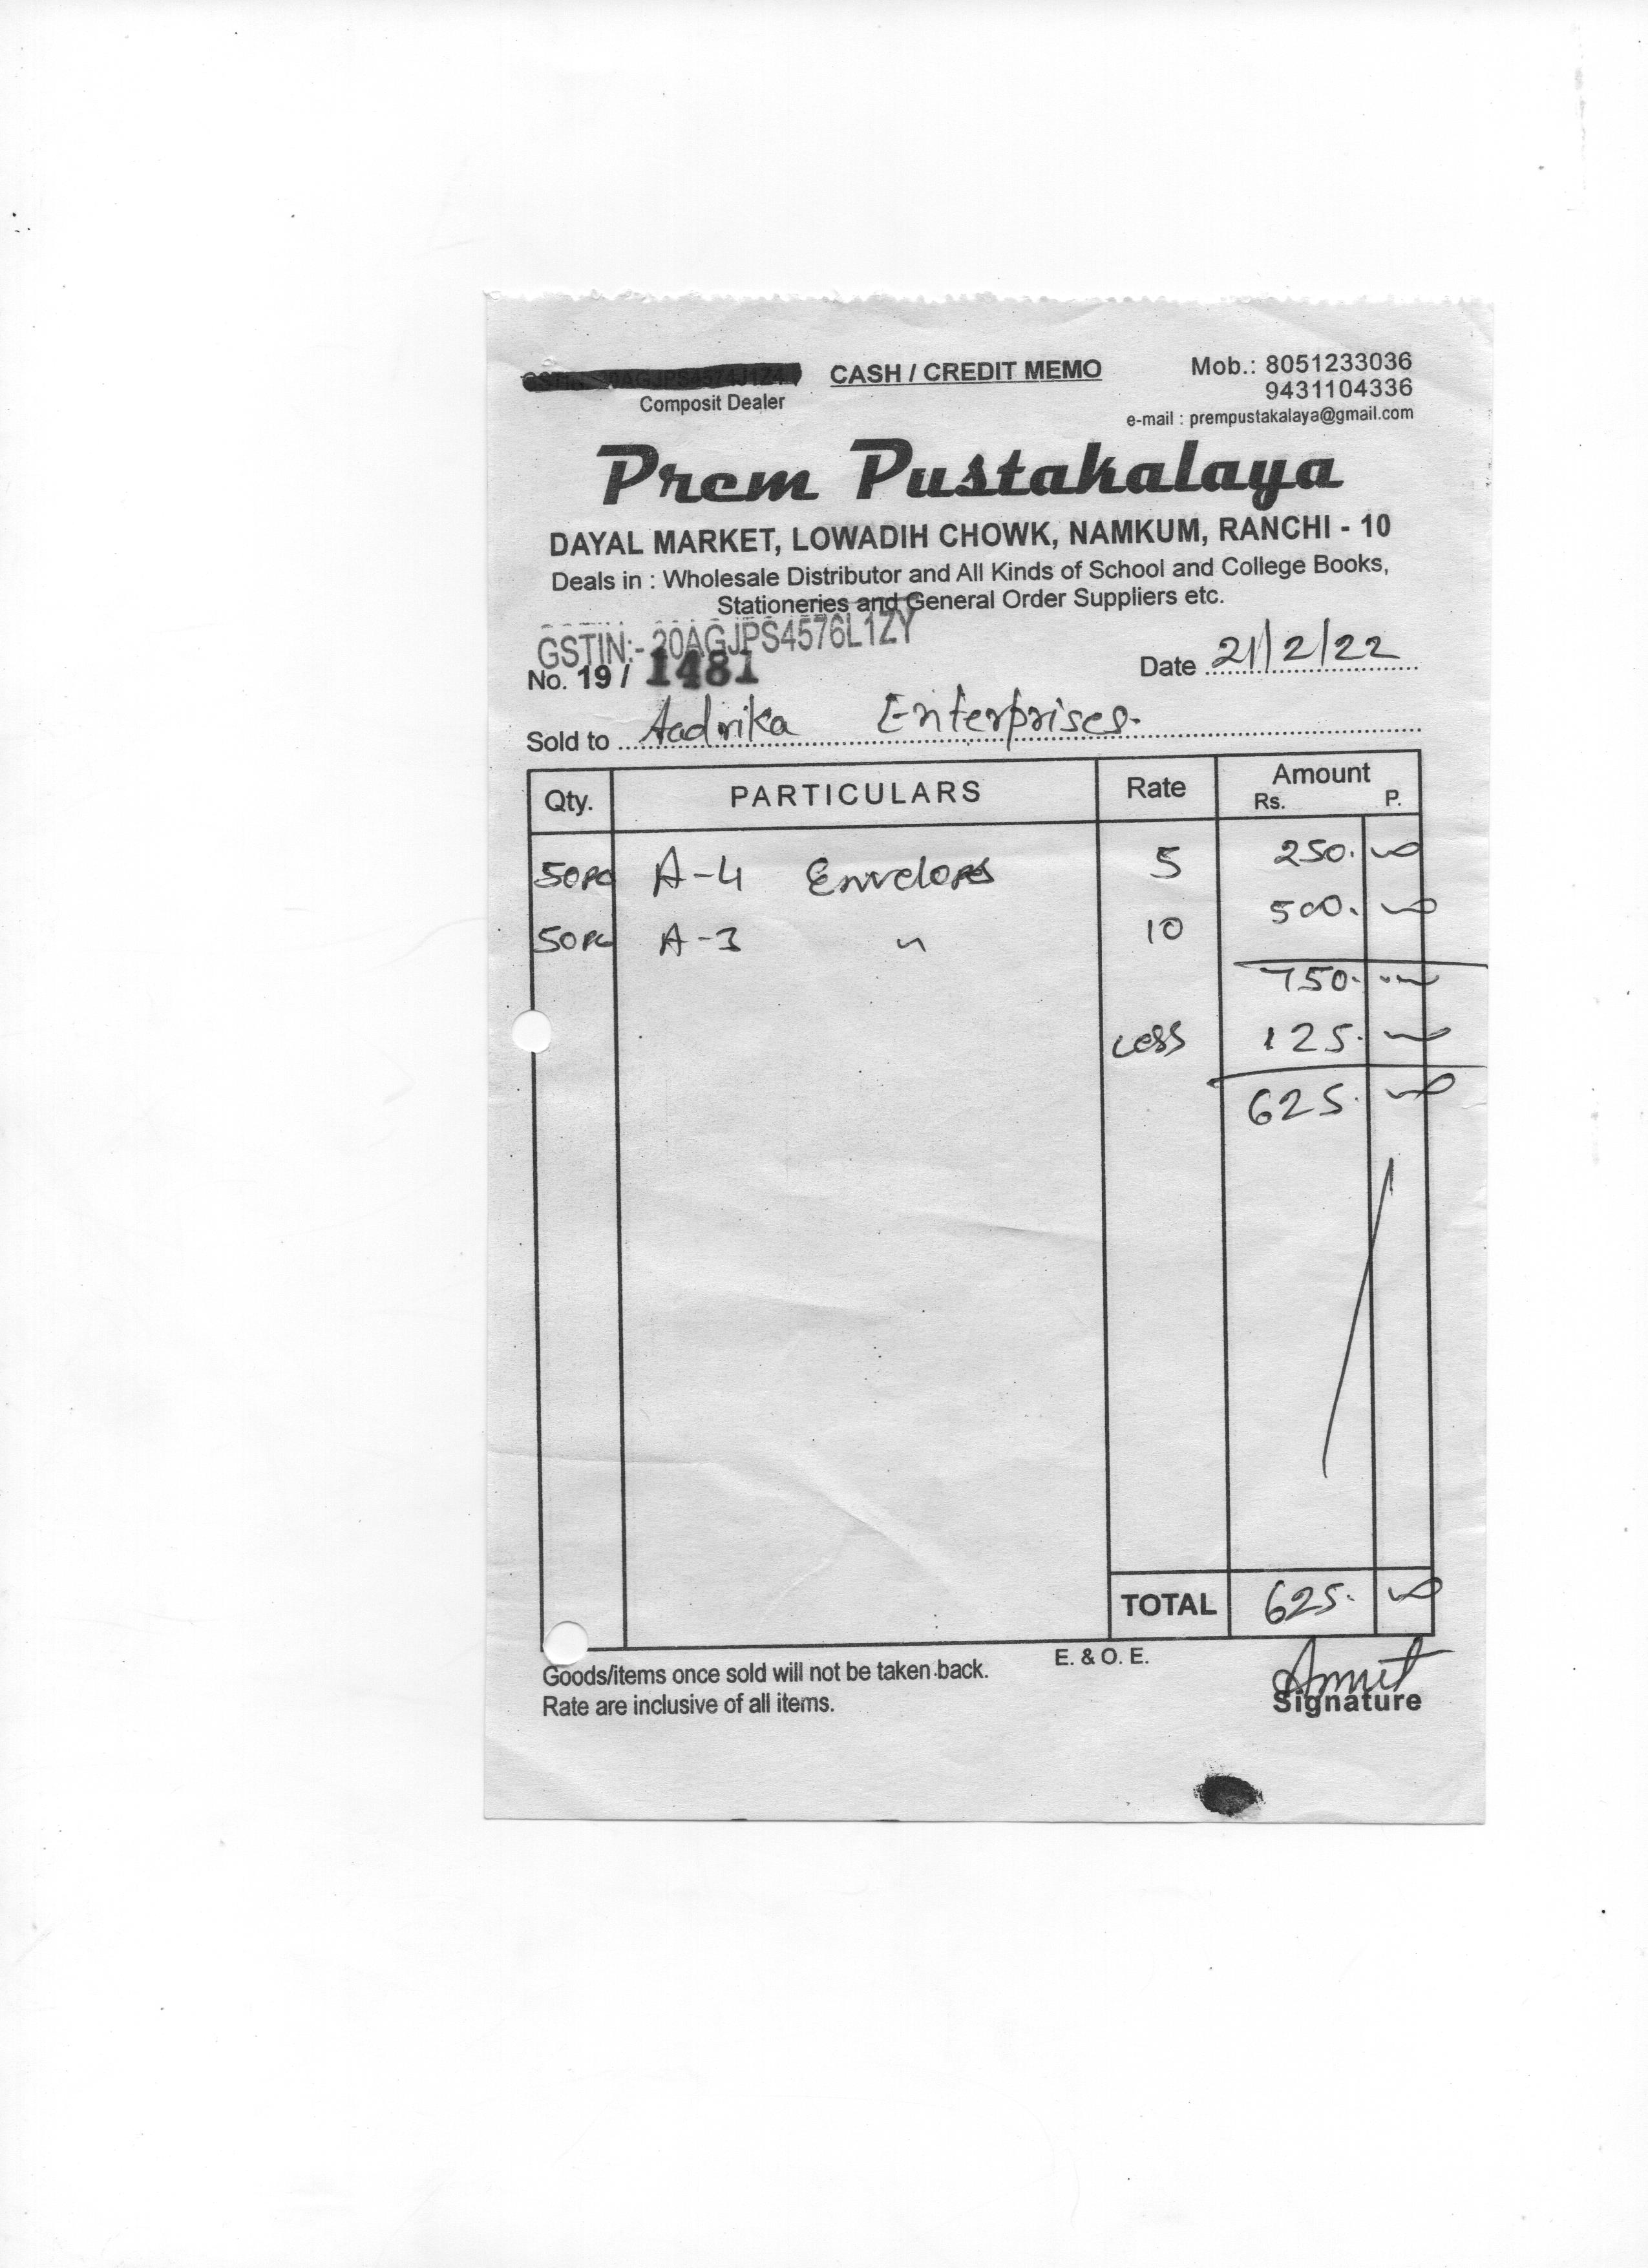 CASH / CREDIT MEMO
Mob.: 8051233036
9431104336
Composit Dealer
e-mail : prempustakalaya@gmail.com
Prem Pustakalaya
DAYAL MARKET, LOWADIH CHOWK, NAMKUM, RANCHI - 10
Deals in : Wholesale Distributor and All Kinds of School and College Books,
Stationeries and General Order Suppliers etc.
GSTIN:- 20AGJPS4576L1ZY
No. 19 / 1481 Date 21/2/22
Sold to Aadrika Enterprises.
Qty. PARTICULARS Rate Amount
Rs. P.
50pc A-4 Envelopes 5 250.
50pc A-3 " 10 500.
750.
Less 125.
625.
TOTAL 625.
E. & O. E.
Goods/items once sold will not be taken back.
Rate are inclusive of all items.
Signature